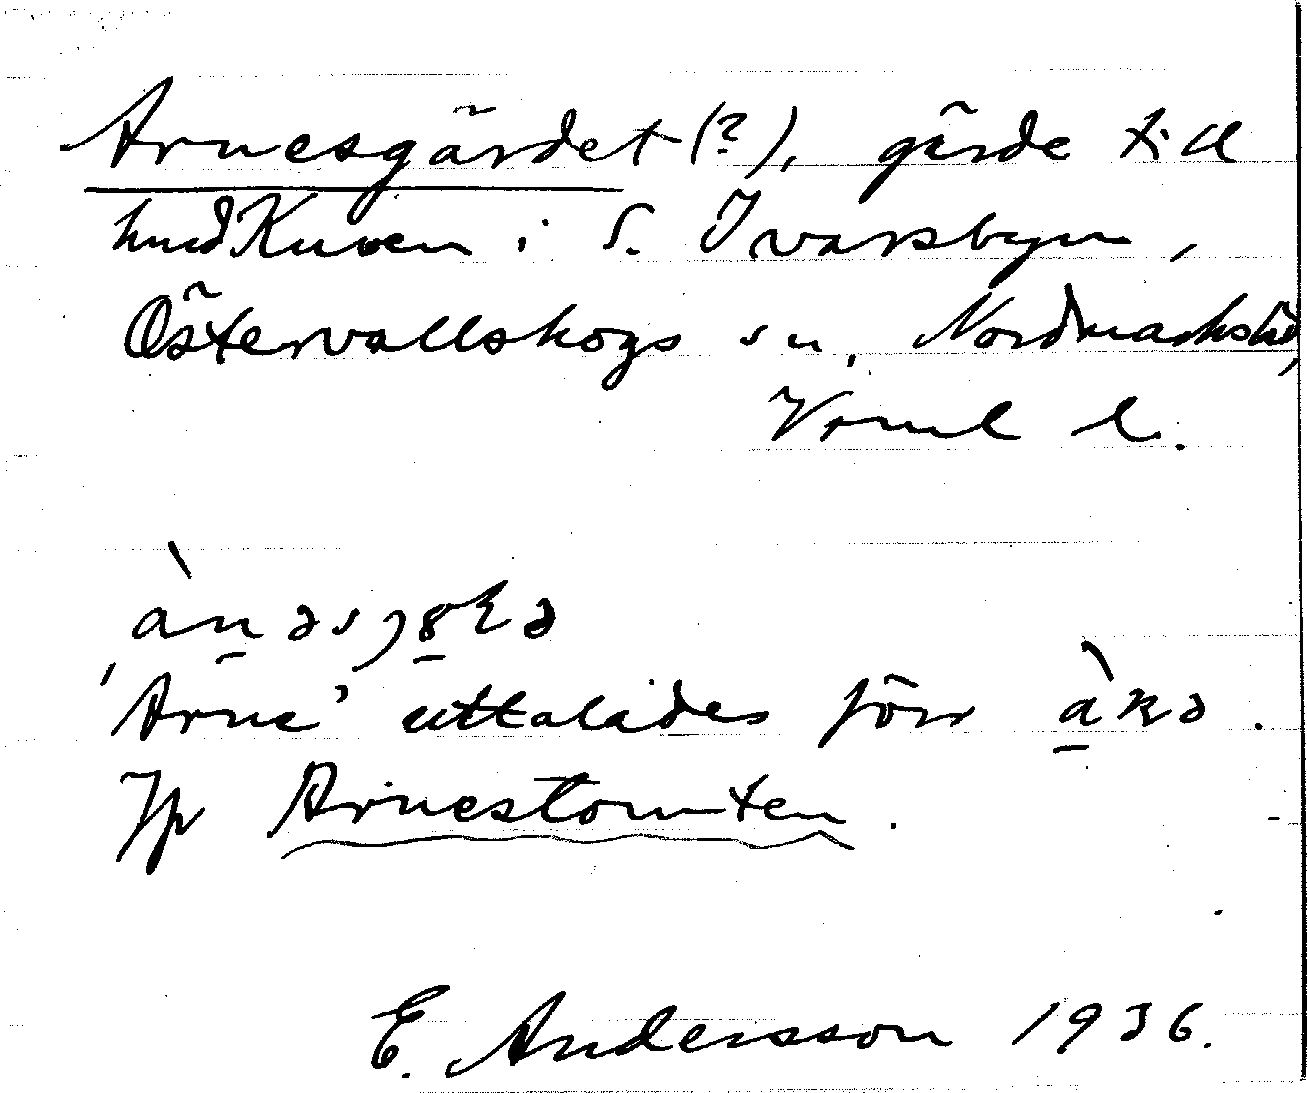 Arnesgärdet (?), gärde till
hmd Kuven i S. Ivarsbyn,
Östervallskogs sn, Nordmarks hd,
Vrml l.
'Arne' uttalades förr
Jfr Arnestomten.
E. Andersson 1936.